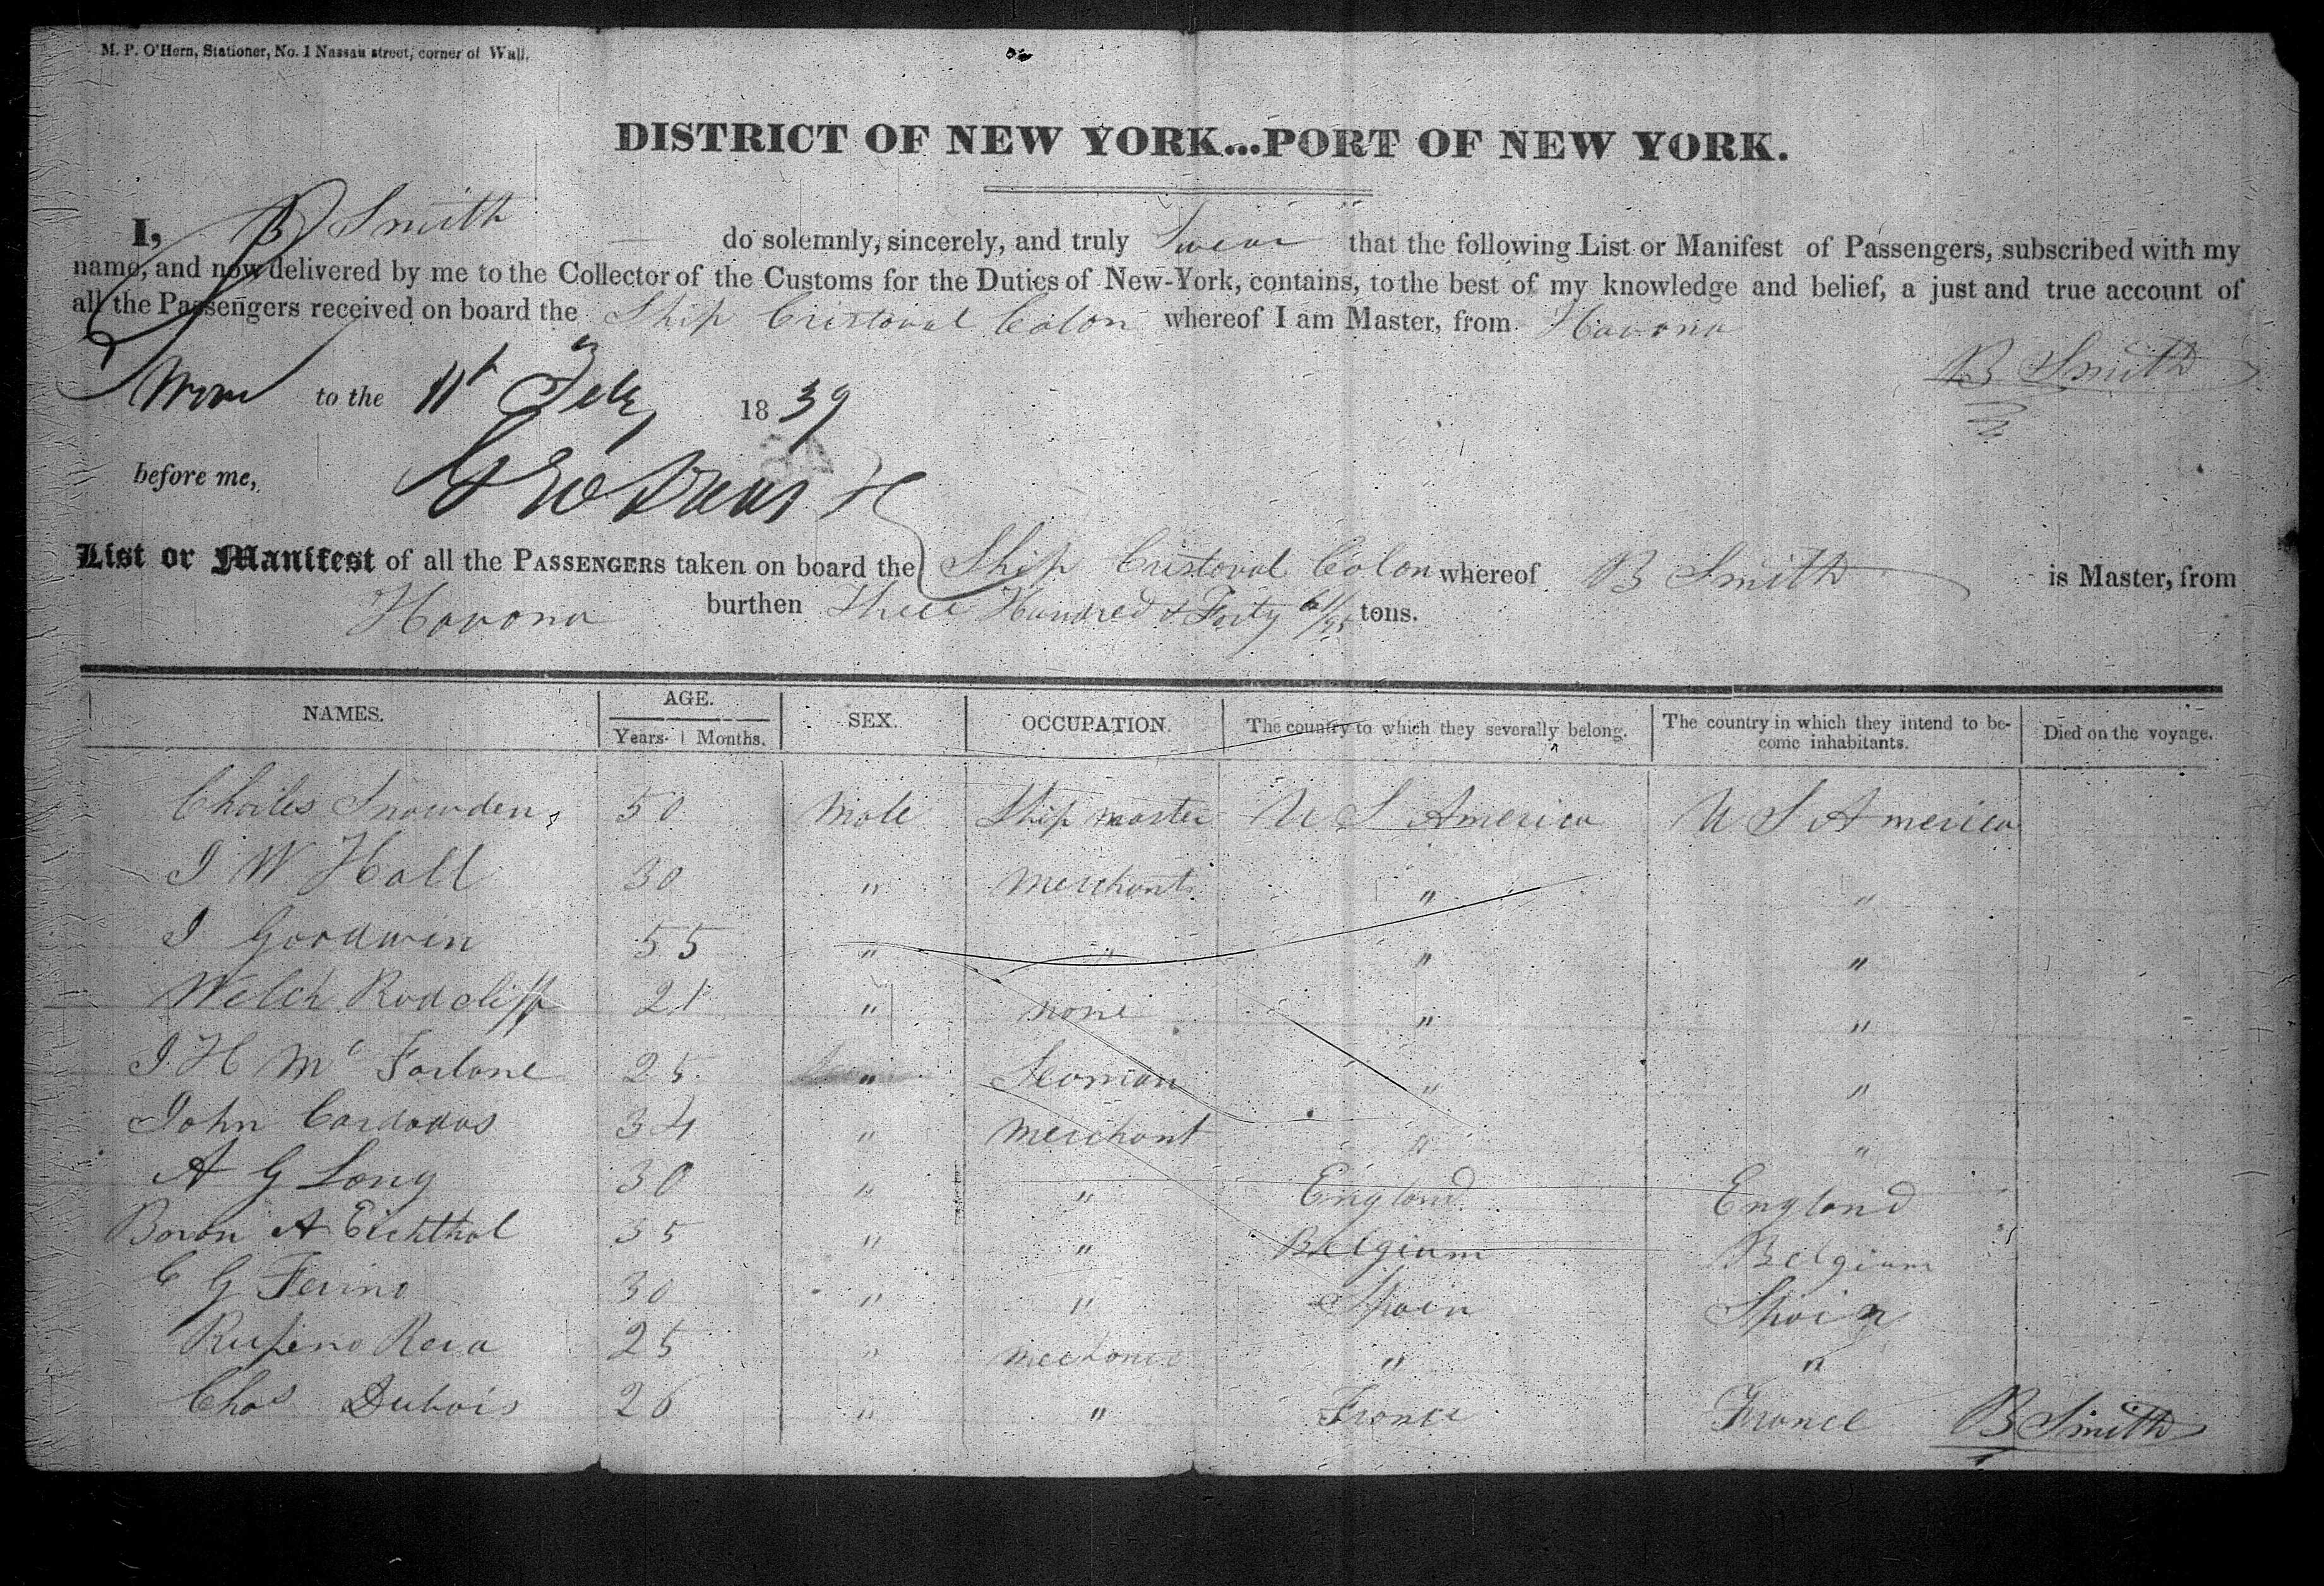 M. P. O'Hern, Stationer, No. 1 Nassau street, corner of Wall.
DISTRICT OF NEW YORK...PORT OF NEW YORK.
I, B Smith do solemnly, sincerely, and truly Swear that the following List or Manifest of Passengers, subscribed with my
name, and now delivered by me to the Collector of the Customs for the Duties of New-York, contains, to the best of my knowledge and belief, a just and true account of
all the Passengers received on board the Ship Cristoval Colon whereof I am Master, from Havana
B Smith
Sworn to the 11t Feby 1839
before me,
List or Manifest of all the PASSENGERS taken on board the Ship Cristoval Colon whereof B Smith is Master, from
Havana burthen Three Hundred & Forty 61/95 tons.
NAMES. AGE. SEX. OCCUPATION. The country to which they severally belong. The country in which they intend to be-come inhabitants. Died on the voyage.
Years. Months.
Charles Snowden 50 Male Ship master U S America U S America
J W Hall 30 " merchant " "
J Goodwin 55 " " " "
Welch Radcliff 21 " none " "
J H Mc Farlane 25 " Seaman " "
John Cardovas 34 " merchant " "
A G Long 30 " " England England
Baron A Eichthal 35 " " Belgium Belgium
C G Ferino 30 " " Spain Spain
Rufeno Reia 25 " mechanic " "
Chas Dubois 26 " " France France B Smith